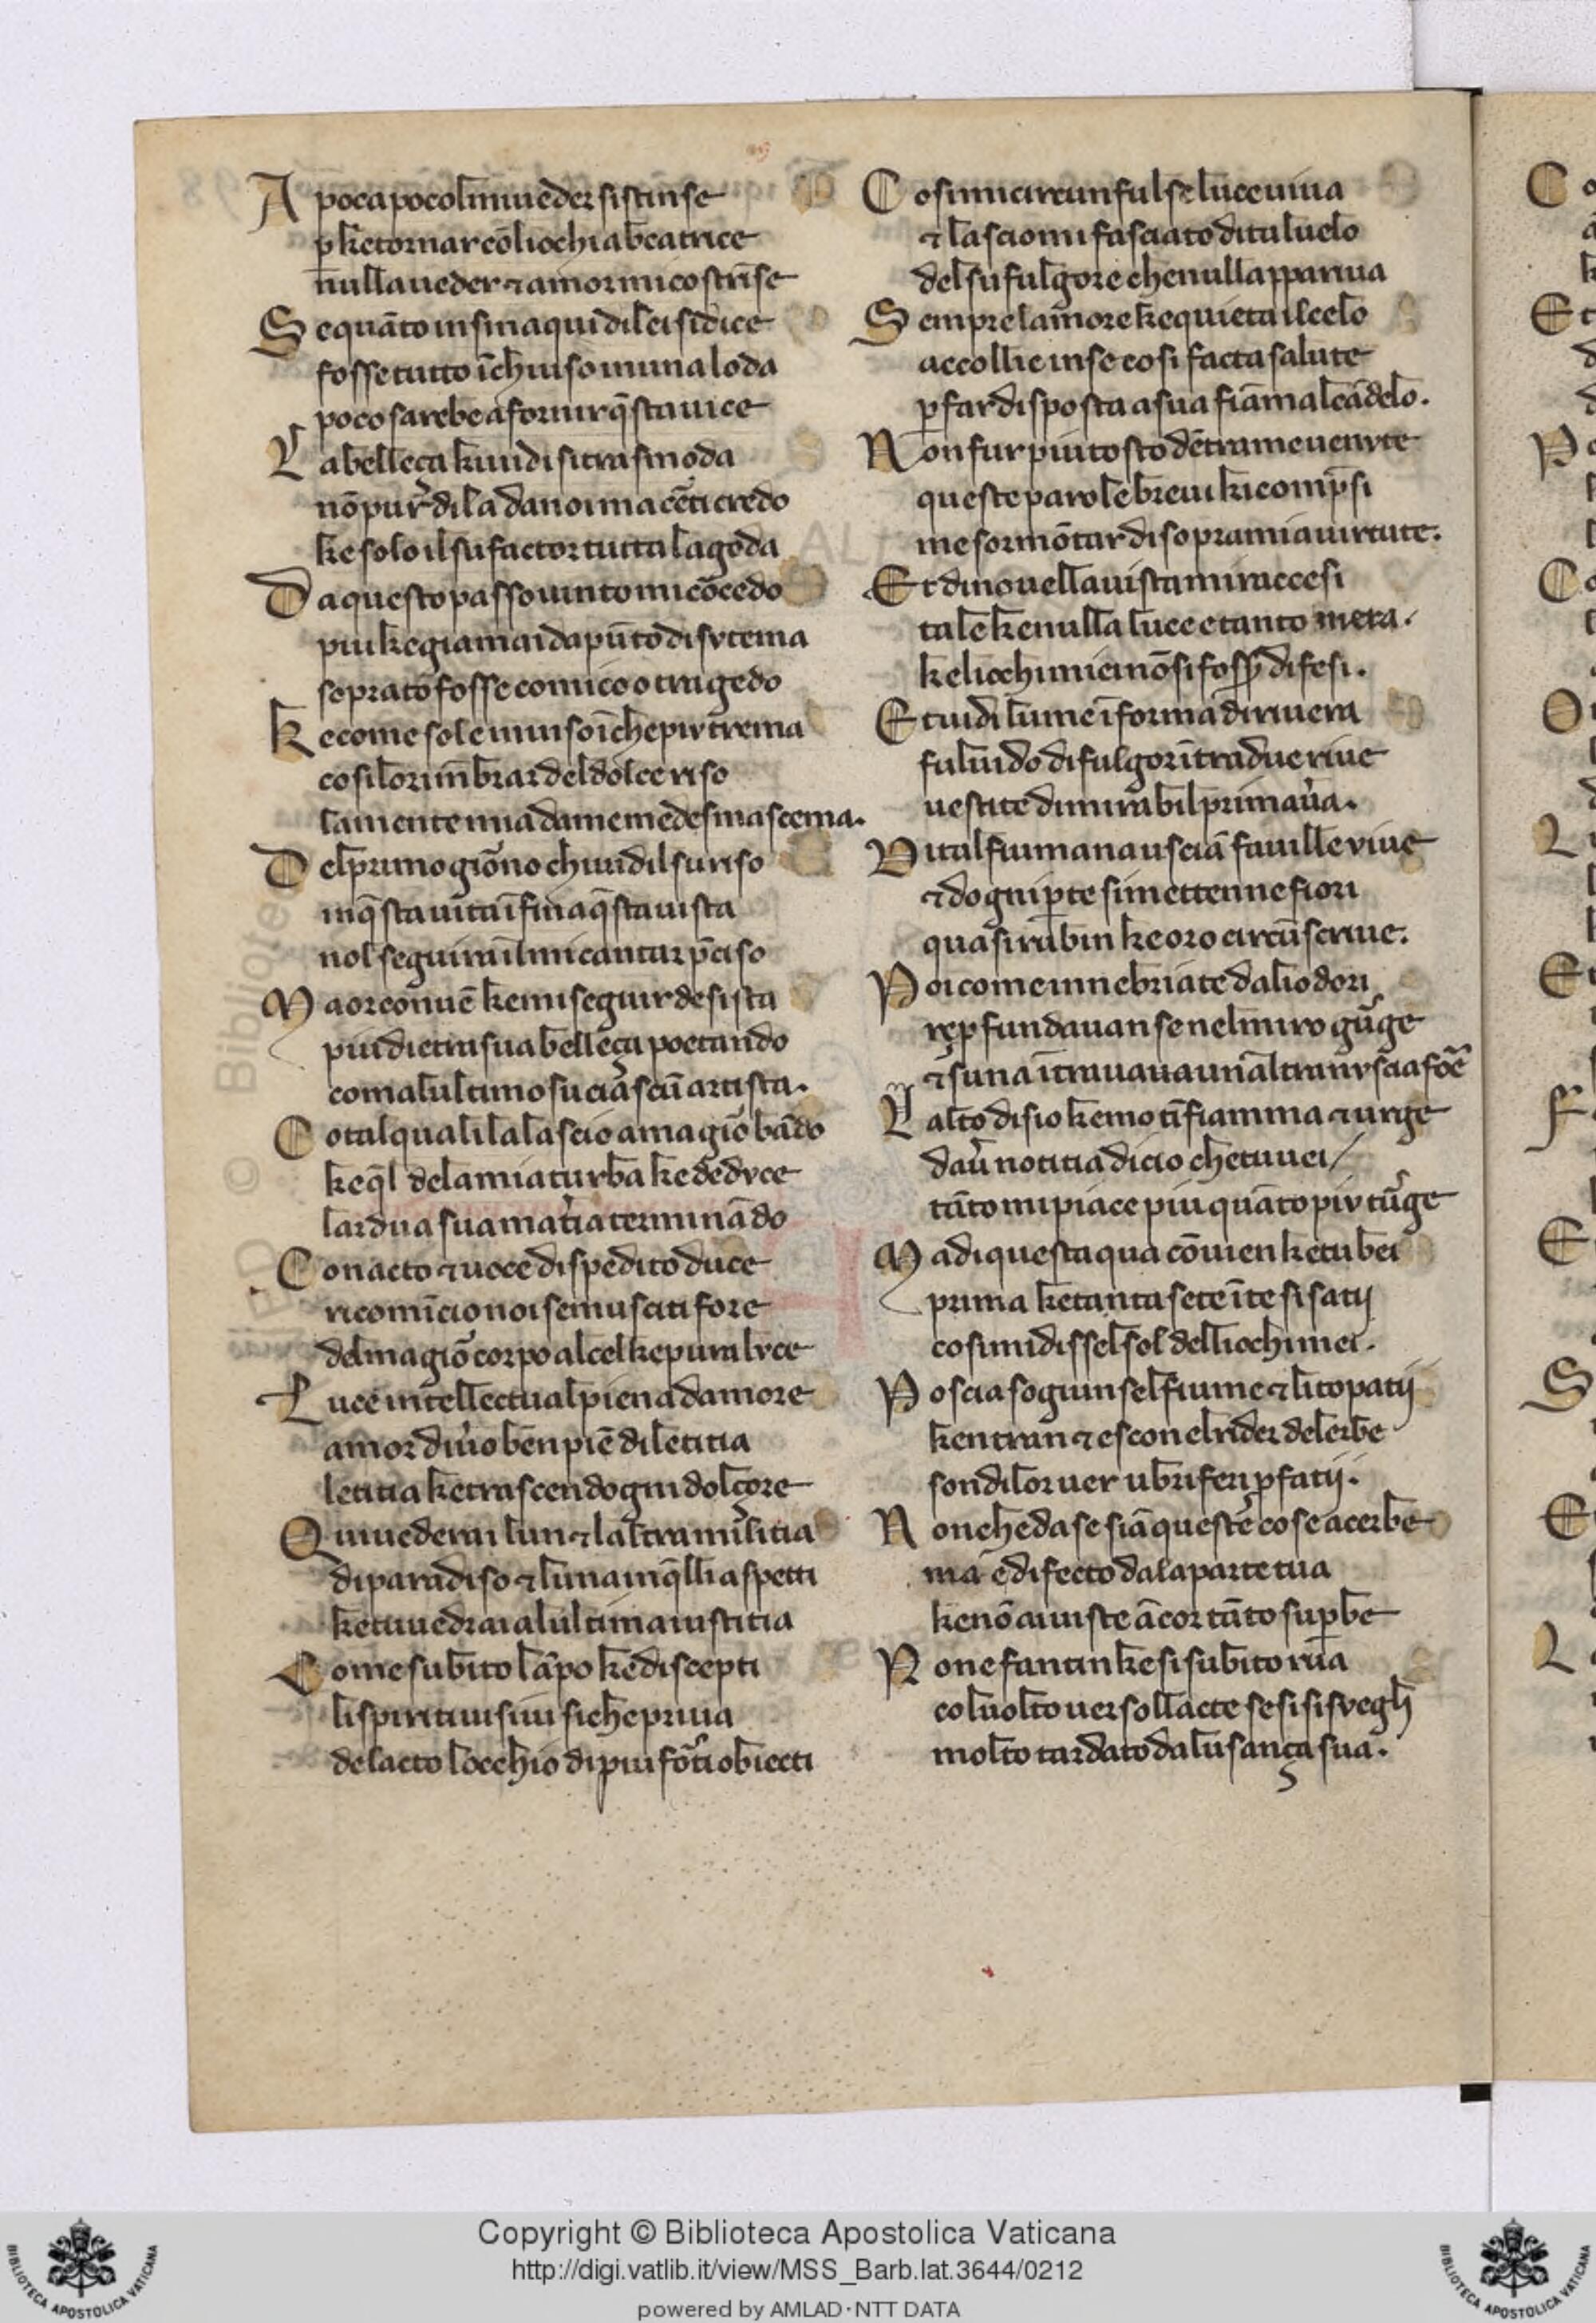 A poca poco lmiu veder si stinse
p ke tornar cō li ochi a beatrice
nulla veder ⁊ amor mi costrīse
S e quāto insina qui di lei si dice
fosse tutto īchiuso in una loda
poco sarebe a fornir q̄sta vice
L a belleça k io vidi si trasmoda
nō pur di la da noi ma cēti credo
ke solo il su factor tutta la goda
D a questo passo vinto mi cōcedo
piu ke gia mai da pūto di su tema
soprato fosse comico o tragedo
k e come sole in viso īche piv trema
cosi lo rimēbrar del dolce riso
la mente mia da me medesma scema.
D el primo giōno ch i vidi l su viso
in q̄sta vita īfin a q̄sta vista
nol seguir il mi cantar p̄ciso
M a or convē ke mi seguir desista
piu dietr a sua belleça poetando
com a lultimo su ciascū artista.
C otal qual i la lascio a magiō bādo
ke q̄l de la mia turba ke dedvce
lardua sua matia terminādo
C on acto ⁊ voce di spedito duce
ricomīcio noi semo usciti fore
del magiō corpo al cel ke pura lvce
L uce intellectual piena damore
amor di vo ben piē di letitia
letitia ke trascende ogni dolçore
Q ui vederai luna ⁊ laltra militia
di paradiso ⁊ luna in q̄lli aspetti
ke tu vedrai a lultima iustitia
C ome subito lāpo ke discepti
li spiriti visivi si che priva
de lacto locchio di piu fōti obiecti
C osi mi circunfulse luce viva
⁊ lasciomi fasciato di tal velo
del su fulgore che nulla appariva
S empre lamore ke quieta il celo
accollie in se cosi facta salute
p far disposta a sua fiāma l cādelo.
N on fur piu tosto dētr a me venvte
queste parole brevi k i comp̄si
me sormōtar di sopra mia virtute.
E t di novella vista mi raccesi
tale ke nulla luce e tanto mera.
ke li ochi miei nō si fosser difesi.
E t vidi lume ī forma di rivera
fulvido di fulgor ītra due rive
vestite di mirabil primavera.
D i tal fiumana usciā faville vive
⁊ dogni pte si mettenne fiori
quasi rubin ke oro circūscrive.
P oi come innebriate da li odori
rep fundavan se nel miro gūge
⁊ s una ītrava unaltra nuscia fōe
L alto disio ke mo tīfiamma ⁊ urge
daver notitia di cio che tu vei/
tāto mi piace piu quāto piv tūge
M a di questa qua cōvien ke tu bei
prima ke tanta sete ī te si satij
cosi mi disse l sol delli ochi miei.
P oscia sogiunse l fiume ⁊ li topatij
kentran ⁊ escon el rider de lerbe
son di lor ver ubriferi p fatij.
N on che da se siā queste cose acerbe
ma e difecto da la parte tua
ke nō ai viste ācor tāto supbe
N on e fantin ke si subito rua
col volto verso l lacte se si sisvegli
molto tardato da lusança sua.
Copyright © Biblioteca Apostolica Vaticana
http://digi.vatlib.it/view/MSS_Barb.lat.3644/0212
powered by AMLAD·NTT DATA